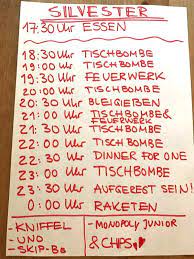 SILVESTER
17:30 Uhr ESSEN
18:30 Uhr TISCHBOMBE
19:00 Uhr TISCHBOMBE
19:30 Uhr FEUERWERK
20:00 Uhr TISCHBOMBE
20:30 Uhr BLEIGIEßEN
21:00 Uhr TISCHBOMBE &
FEUERWERK
21:30 Uhr TISCHBOMBE
22:00 Uhr TISCHBOMBE
22:30 Uhr DINNER FOR ONE
23:00 Uhr TISCHBOMBE
23:30 Uhr AUFGEREGT SEIN!
0:00 Uhr RAKETEN
- KNIFFEL
- UNO
- SKIP-BO
- MONOPOLY JUNIOR
& CHIPS